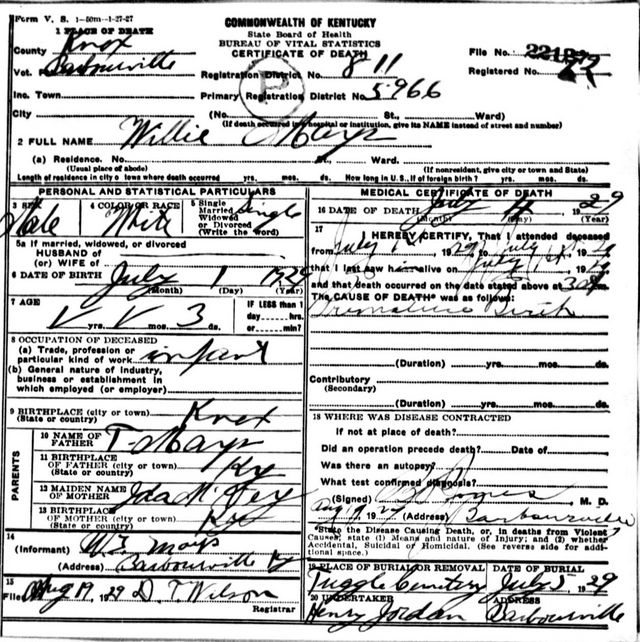 Form V. S. 1-50m-1-27-27
COMMONWEALTH OF KENTUCKY
State Board of Health
BUREAU OF VITAL STATISTICS
CERTIFICATE OF DEATH
1 PLACE OF DEATH
County Knox
File No.
Vot. Barbourville
Registration District No. 811
Registered No.
Inc. Town
Primary Registration District No. 5966
City (No. St., Ward)
(If death occurred in a hospital or institution, give its NAME instead of street and number)
2 FULL NAME Willie Mays
(a) Residence. No. Ward.
(Usual place of abode) (If nonresident, give city or town and State)
Length of residence in city or town where death occurred yrs. mos. ds. How long in U.S., if of foreign birth? yrs. mos. ds.
PERSONAL AND STATISTICAL PARTICULARS
3 SEX Male
4 COLOR OR RACE White
5 Single Married Widowed or Divorced (Write the word) Single
5a If married, widowed, or divorced
HUSBAND of
(or) WIFE of
6 DATE OF BIRTH July 1 1929
(Month) (Day) (Year)
7 AGE
yrs. mos. 3 ds.
IF LESS than 1
day hrs.
or min.?
8 OCCUPATION OF DECEASED
(a) Trade, profession or particular kind of work infant
(b) General nature of industry,
business or establishment in
which employed (or employer)
9 BIRTHPLACE (city or town) Knox
(State or country)
PARENTS
10 NAME OF FATHER T. Mays
11 BIRTHPLACE
OF FATHER (city or town) Ky
(State or country)
12 MAIDEN NAME
OF MOTHER Ida
13 BIRTHPLACE
OF MOTHER (city or town) Ky
(State or country)
14
(Informant) Mays
(Address) Barbourville Ky
15
Filed Aug 19, 1929 D. T. Wilson
Registrar
MEDICAL CERTIFICATE OF DEATH
16 DATE OF DEATH July 1929
(Month) (Day) (Year)
17
I HEREBY CERTIFY, That I attended deceased
from July 1 1929 to July 1929
that I last saw him alive on July 1929
and that death occurred on the date stated above at
The CAUSE OF DEATH* was as follows:
Premature Birth
(Duration) yrs. mos. ds.
Contributory
(Secondary)
(Duration) yrs. mos. ds.
18 WHERE WAS DISEASE CONTRACTED
If not at place of death?
Did an operation precede death? Date of
Was there an autopsy?
What test confirmed diagnosis?
(Signed) M. D.
Aug 19 1929 (Address) Barbourville
*State the Disease Causing Death, or, in deaths from Violent
Causes, state (1) Means and nature of Injury; and (2) whether
Accidental, Suicidal or Homicidal. (See reverse side for addi-
tional space.)
19 PLACE OF BURIAL OR REMOVAL DATE OF BURIAL
Tuggle Cemetery July 1929
20 UNDERTAKER ADDRESS
Henry Jordan Barbourville